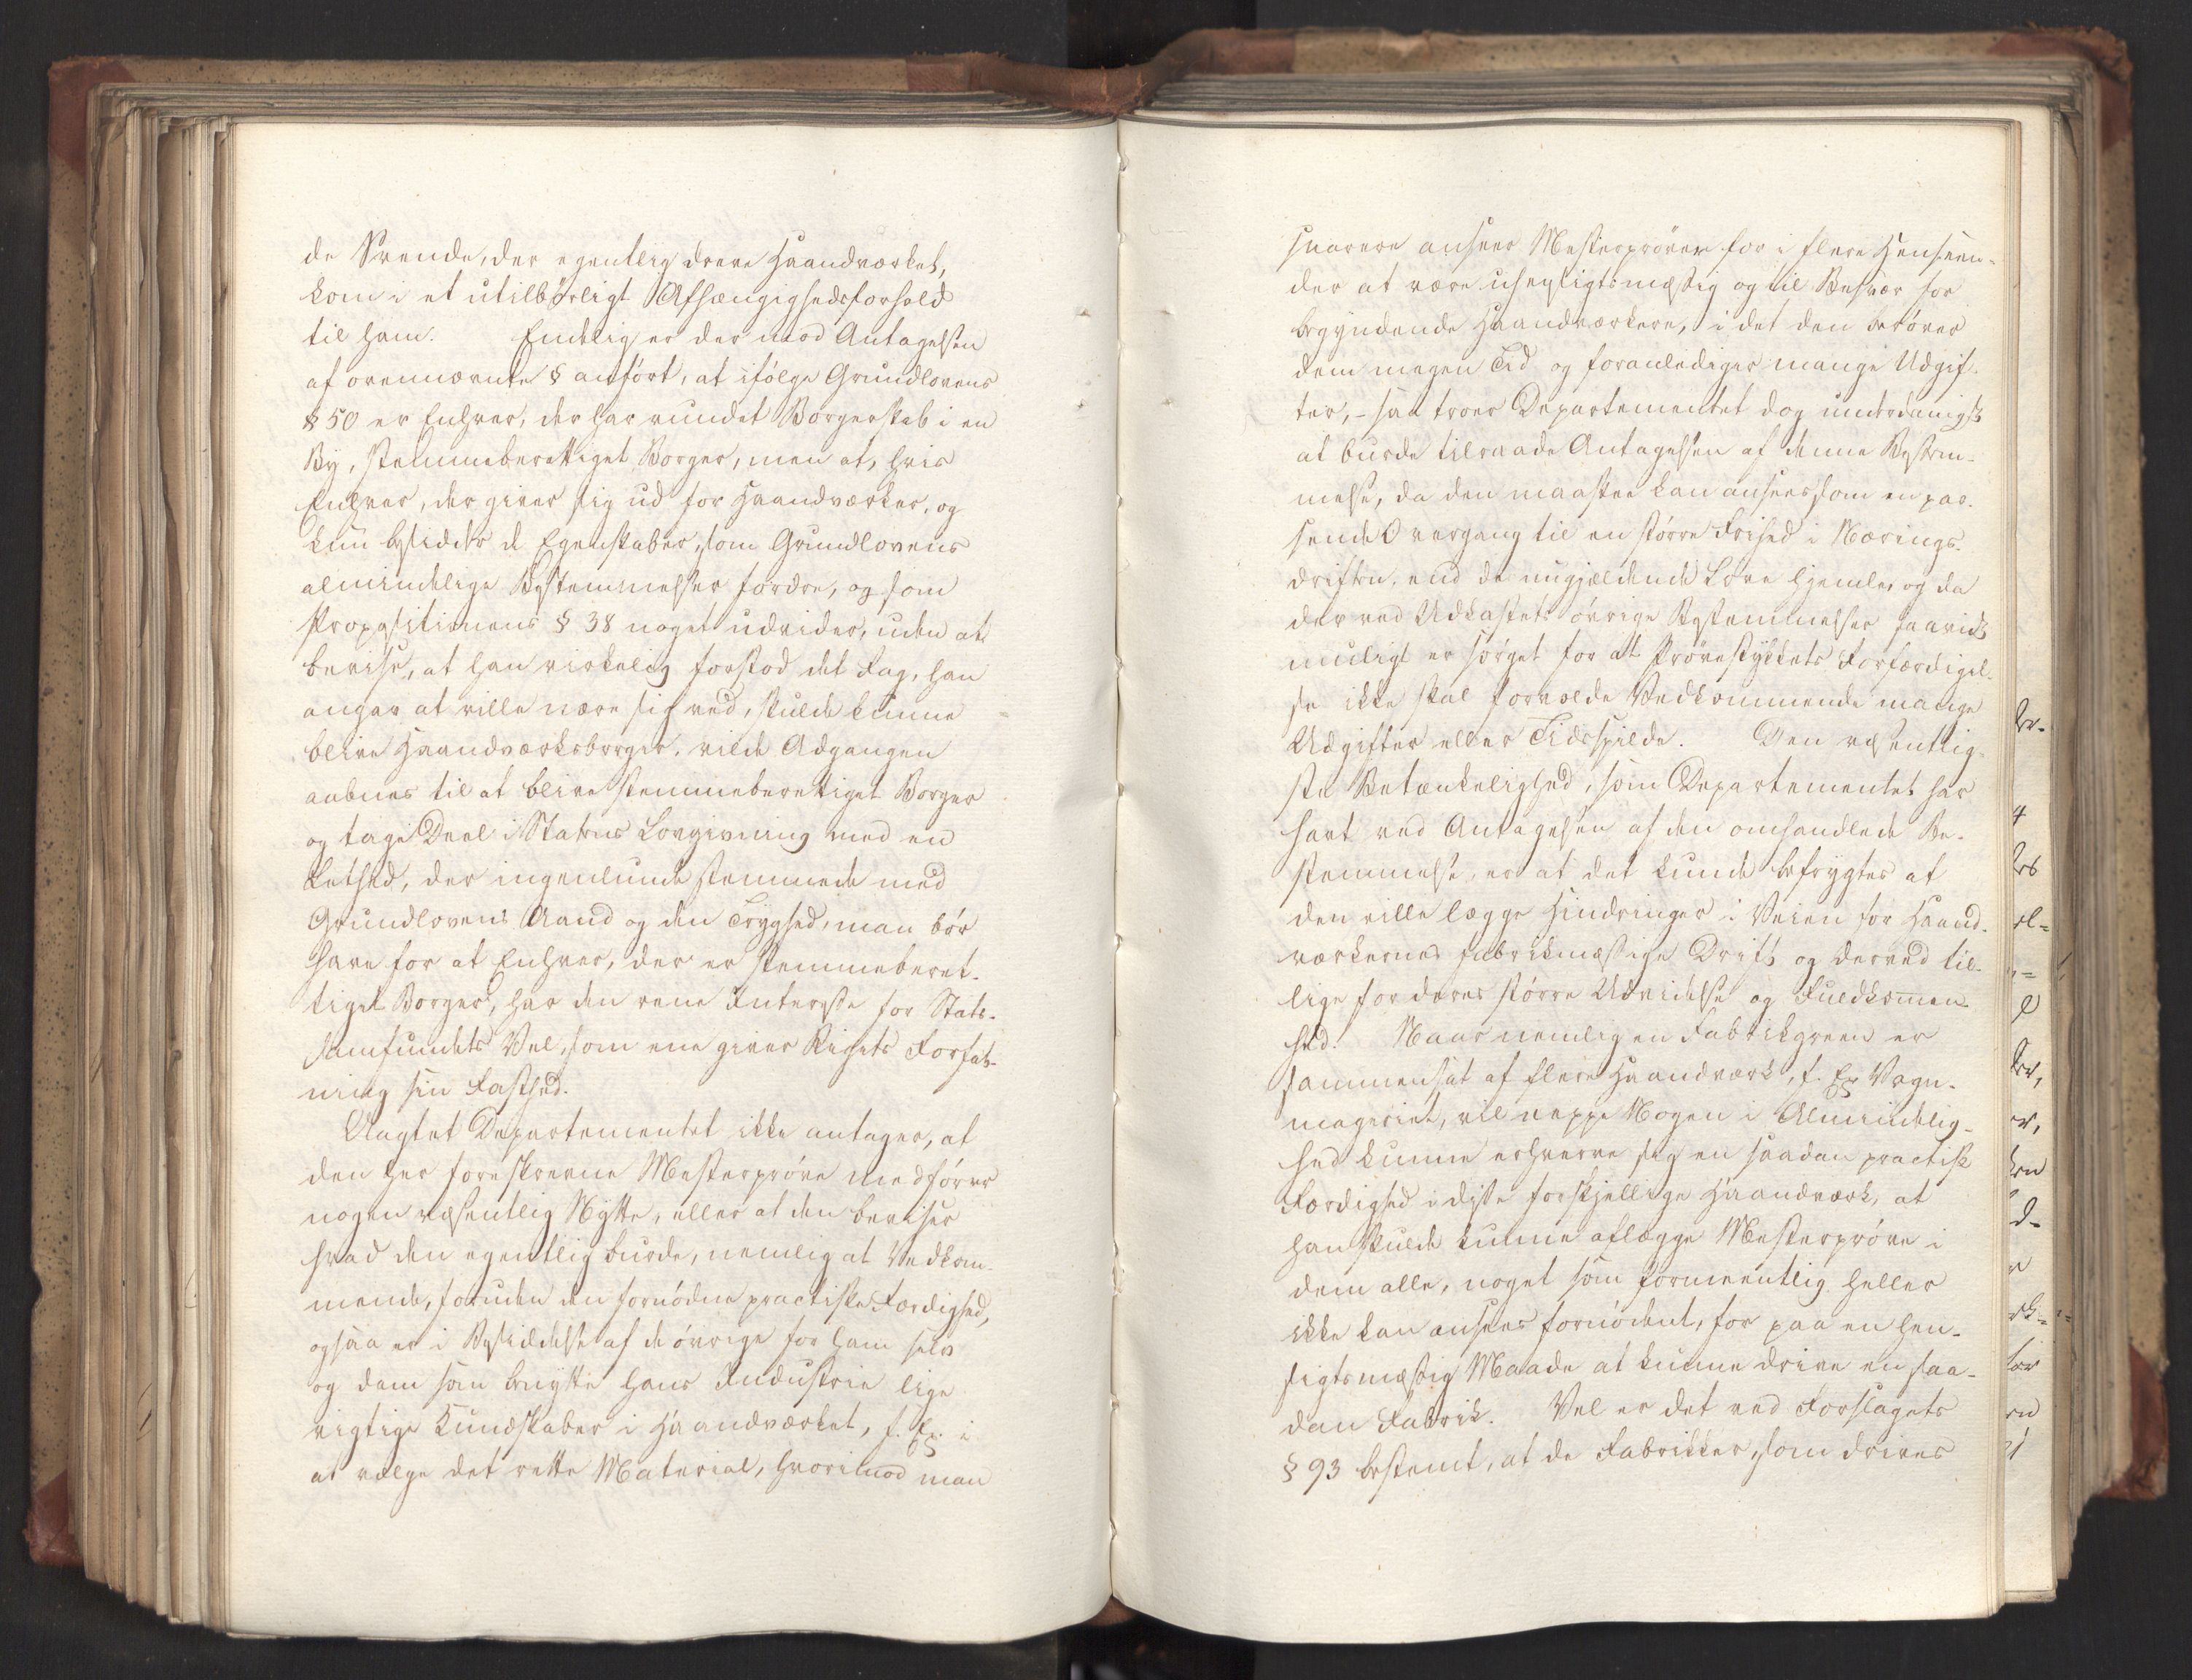 de Svende, der egentlig dreve Haandværket,
kom i et utilbörligt Afhængighedsforhold
til ham. Endelig er der mod Antagelsen
af ovennævnte § anfört, at ifölge Grundlovens
§ 50 er Enhver, der har vundet Borgerskab i en
By, stemmeberettiget Borger, men at, hvis
Enhver, der giver sig ud for Haandværker, og
kun besidder de Egenskaber, som Grundlovens
almindelige Bestemmelser fordre, og som
Propositionens § 38 noget udvider, uden at
bevise, at han virkelig forstod det Fag, han
angav at ville nære sig ved, skulde kunne
blive Haandværksborger, vilde Adgangen
aabnes til at blive stemmeberettiget Borger
og tage Deel i Statens Lovgivning med en
Lethed, der ingenlunde stemmede med
Grundlovens Aand og den Tryghed, man bör
have for at Enhver, der er stemmeberet-
tiget Borger, har den rene Interesse for Stats-
samfundets Vel, som ene giver Rigets Forfat-
ning sin Fasthed.
Uagtet Departementet ikke antager, at
den her foreskrevne Mesterpröve medförer
nogen væsentlig Nytte, eller at den beviser
hvad den egentlig burde, nemlig at Vedkom-
mende, foruden den fornödne practiske Færdighed,
ogsaa er i Besiddelse af de övrige for ham selv
og dem som benytte hans Industrie lige
vigtige Kundskaber i Haandværket, f. Ex. i
at vælge det rette Material, hvorimod man
snarere anseer Mesterpröven for i flere Henseen-
der at være uhensigtsmæssig og til Besvær for
begyndende Haandværkere, i det den beröver
dem megen Tid og foranlediger mange Udgif-
ter, - saa troer Departementet dog underdanigst
at burde tilraade Antagelsen af denne Bestem-
melse, da den maaskee kan ansees som en pas-
sende Overgang til en större Frihed i Nærings-
driften, end de nugjældende Love hjemle, og da
der ved Udkastets övrige Bestemmelser saavidt
muligt er sörget for at Prövestykkets Forfærdigel-
se ikke skal forvolde Vedkommende mange
Udgifter eller Tidsspilde. Den væsentlig-
ste Betænkelighed, som Departementet har
havt ved Antagelsen af den omhandlede Be-
stemmelse, er at det kunde befrygtes at
den ville lægge Hindringer i Veien for Haand-
værkernes fabrikmæssige Drift og derved til-
lige for deres större Udvidelse og Fuldkommen-
hed. Naar nemlig en Fabrikgreen er
sammensat af flere Haandværk, f. Ex. Vogn-
mageriet, vil neppe Nogen i Almindelig-
hed kunne erhverve sig en saadan practisk
Færdighed i disse forskjellige Haandværk, at
han skulde kunne aflægge Mesterpröve i
dem alle, noget som formeentlig heller
ikke kan ansees fornödent, for paa en hen-
sigtsmæssig Maade at kunne drive en saa-
dan Fabrik. Vel er det ved Forslagets
§ 93 bestemt, at de Fabrikker, som drives